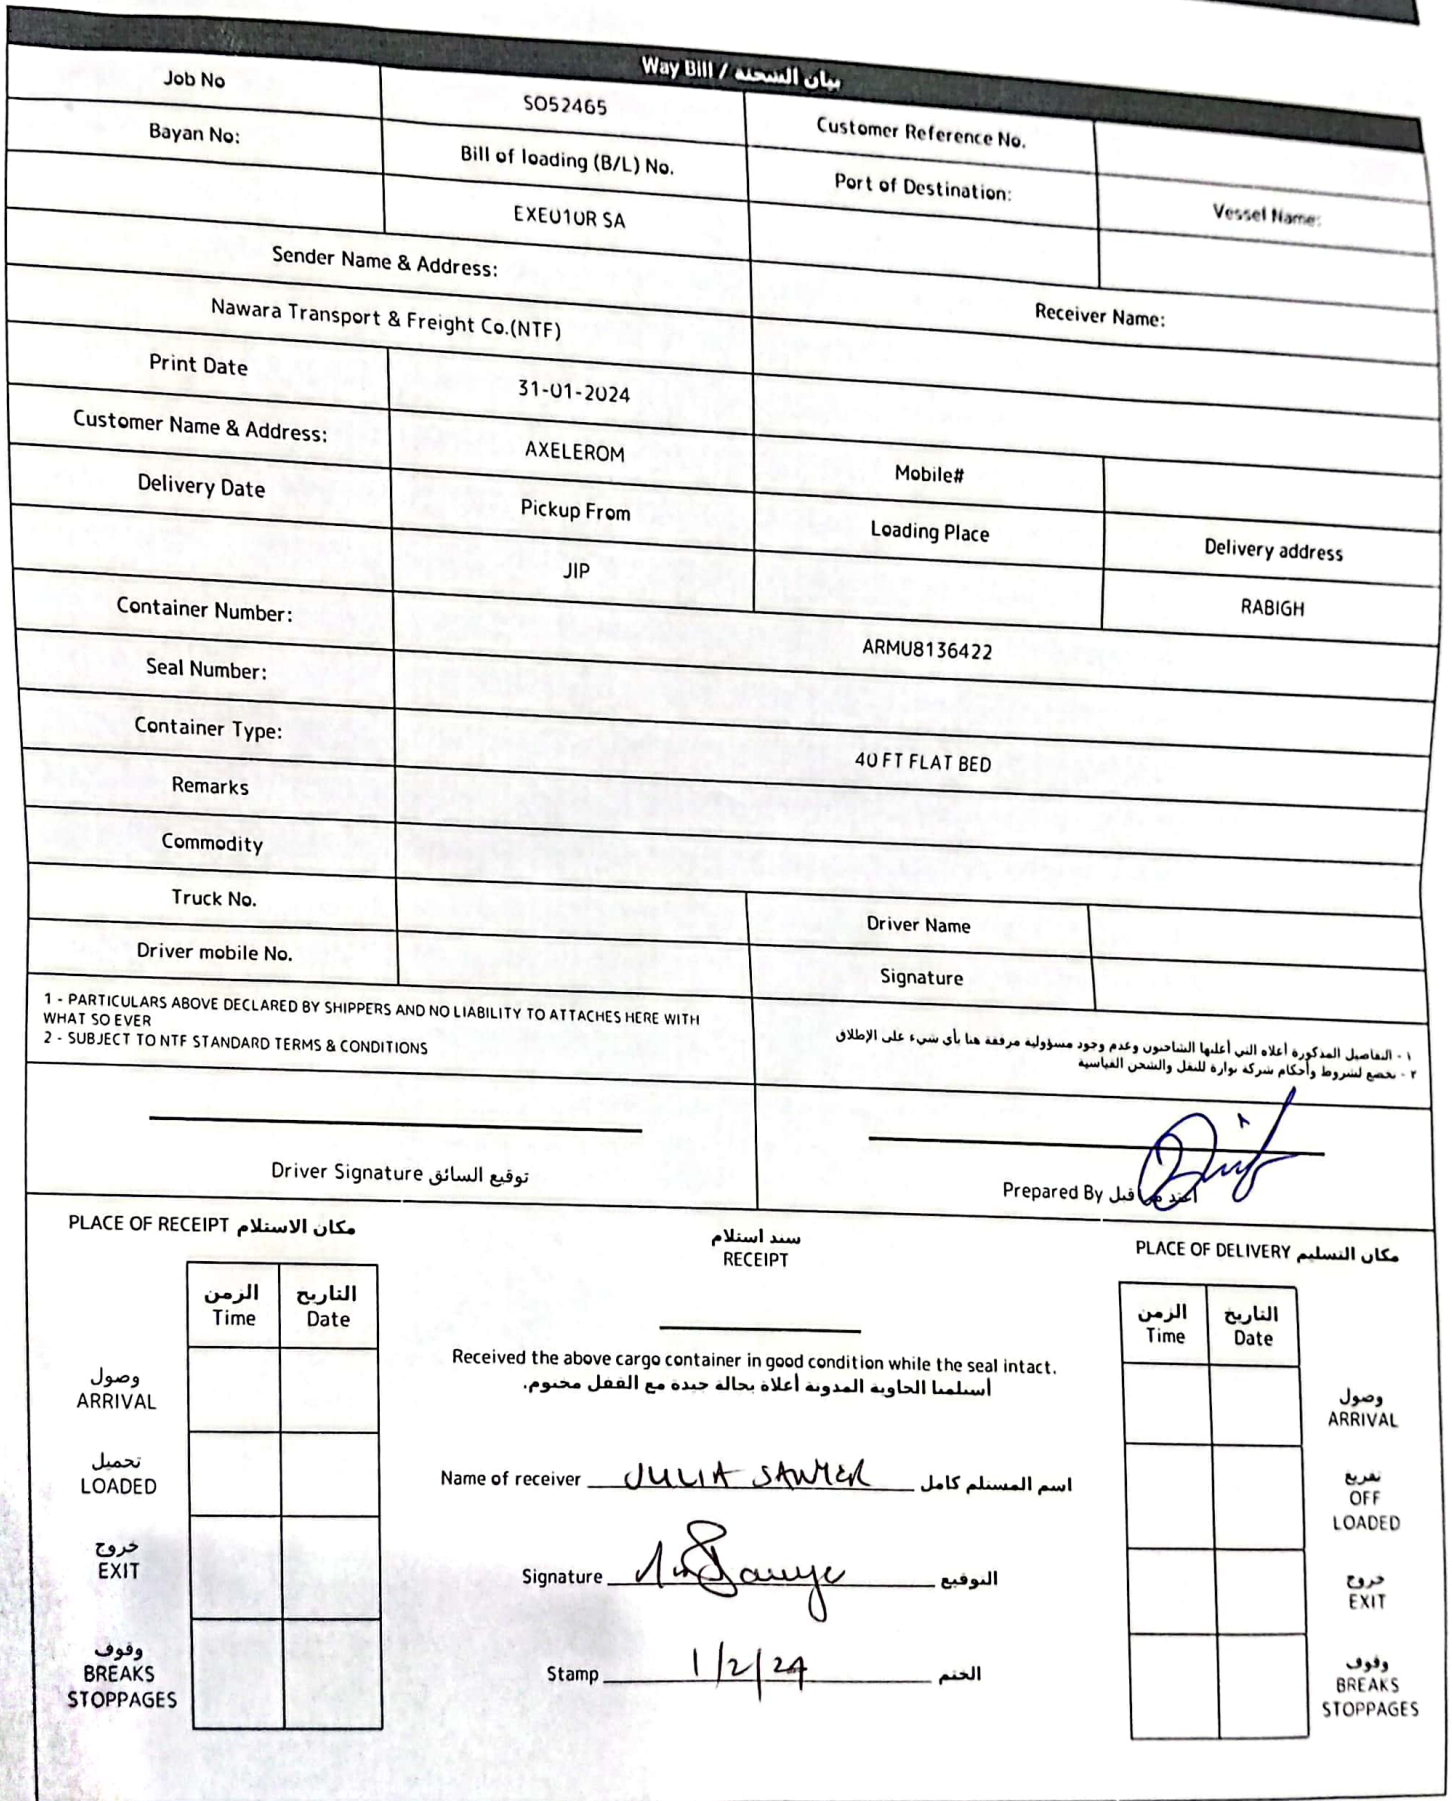 Way Bill / بيان الشحنة
Job No
SO52465
Customer Reference No.
Bayan No:
Bill of loading (B/L) No.
Port of Destination:
Vessel Name:
EXE01OR SA
Sender Name & Address:
Receiver Name:
Nawara Transport & Freight Co.(NTF)
Print Date
31-01-2024
Customer Name & Address:
AXELEROM
Mobile#
Delivery Date
Pickup From
Loading Place
Delivery address
JIP
RABIGH
Container Number:
ARMU8136422
Seal Number:
Container Type:
40 FT FLAT BED
Remarks
Commodity
Truck No.
Driver Name
Driver mobile No.
Signature
1 - PARTICULARS ABOVE DECLARED BY SHIPPERS AND NO LIABILITY TO ATTACHES HERE WITH
WHAT SO EVER
2 - SUBJECT TO NTF STANDARD TERMS & CONDITIONS
١ - التفاصيل المذكورة أعلاه التي أعلنها الشاحنون وعدم وجود مسؤولية مرفقة هنا بأي شيء على الإطلاق
٢ - تخضع لشروط وأحكام شركة نوارة للنقل والشحن القياسية
Driver Signature توقيع السائق
Prepared By أعتد من قبل
PLACE OF RECEIPT مكان الاستلام
سند استلام
RECEIPT
PLACE OF DELIVERY مكان التسليم
الزمن
Time
التاريخ
Date
وصول
ARRIVAL
تحميل
LOADED
خروج
EXIT
وقوف
BREAKS
STOPPAGES
Received the above cargo container in good condition while the seal intact.
أستلمنا الحاوية المدونة أعلاة بحالة جيدة مع القفل مختوم.
Name of receiver JULIA SAWYER اسم المستلم كامل
Signature التوقيع
Stamp 1/2/24 الختم
الزمن
Time
التاريخ
Date
وصول
ARRIVAL
تفريغ
OFF
LOADED
خروج
EXIT
وقوف
BREAKS
STOPPAGES